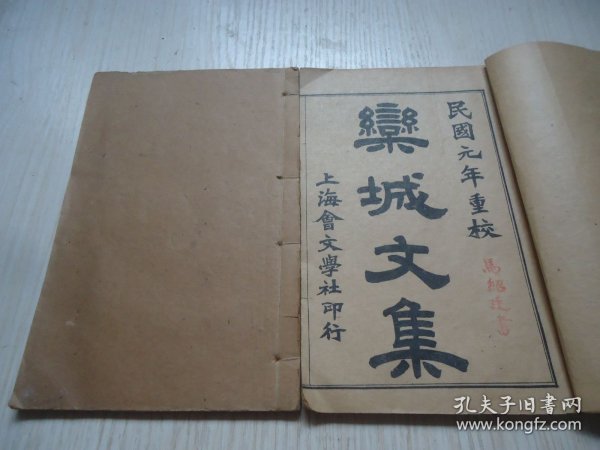 民國元年重校
欒城文集
上海會文學社印行
孔夫子旧書网
www.kongfz.com